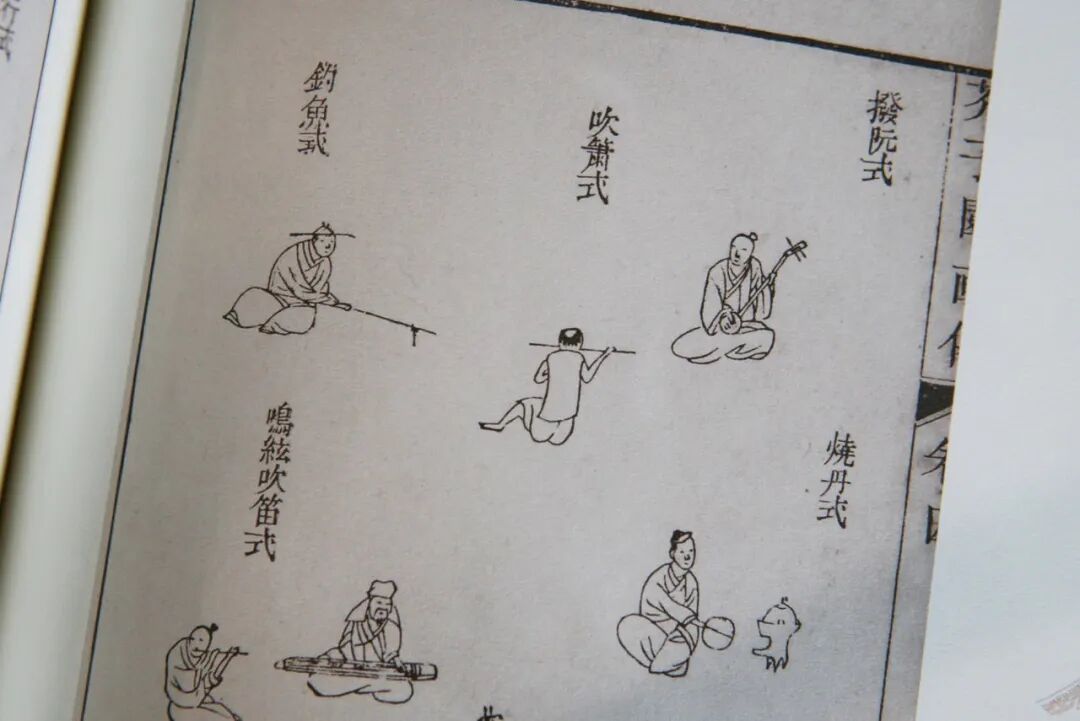 芥子園畫傳
卷四
撥阮式
吹簫式
釣魚式
燒丹式
鳴絃吹笛式